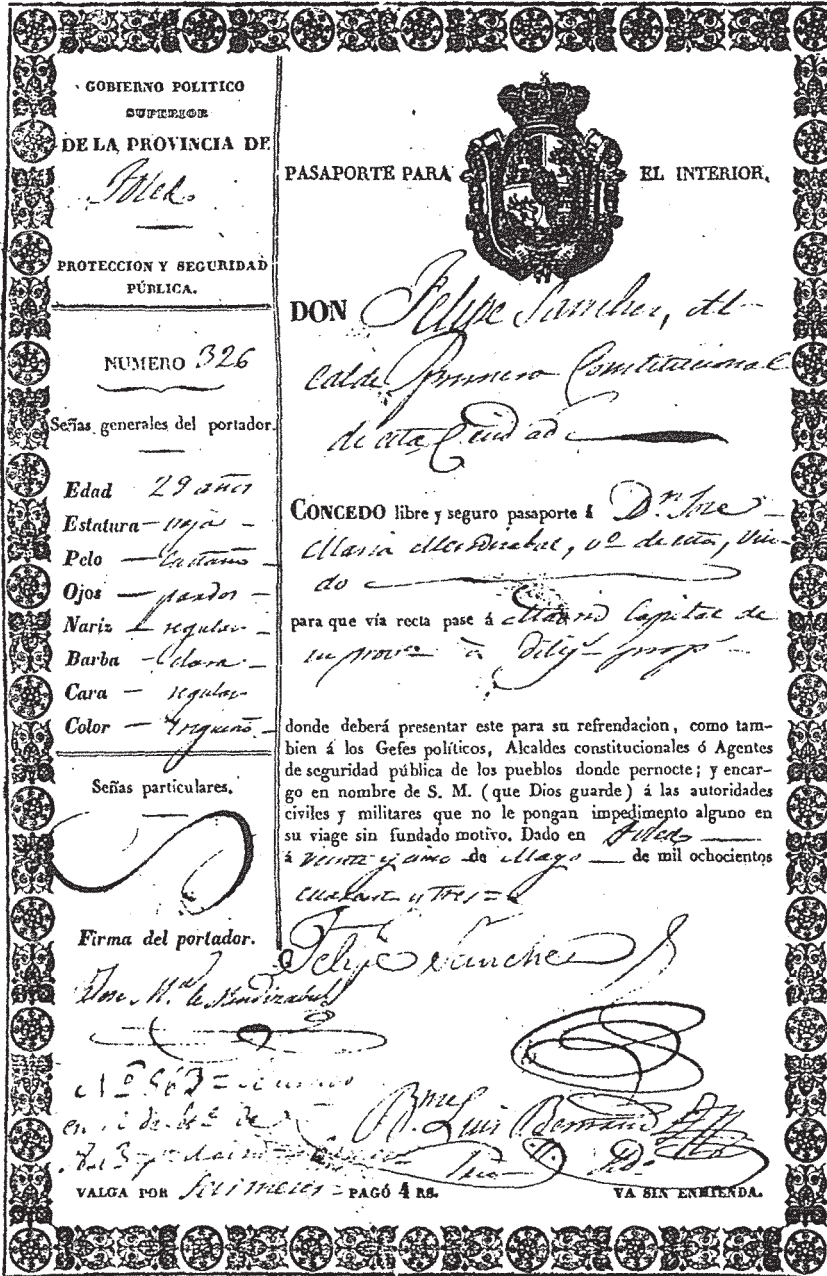 GOBIERNO POLITICO
SUPERIOR
DE LA PROVINCIA DE
Toledo
PROTECCION Y SEGURIDAD
PÚBLICA.
NUMERO 326
Señas generales del portador.
Edad 29 años
Estatura — baja —
Pelo — Castaño —
Ojos — pardos —
Nariz — regular —
Barba — Clara —
Cara — regular
Color — Trigueño —
Señas particulares.
Firma del portador.
Jose M.ª de Mendizabal
PASAPORTE PARA EL INTERIOR.
DON Felipe Sanchez, Al-
calde Primero Constitucional
de esta Ciudad
CONCEDO libre y seguro pasaporte á D.n Jose
Maria Mendizabal, v.º de esta, viu-
do
para que vía recta pase á Madrid Capital de
su prov.ª à dilig.s prop.s
donde deberá presentar este para su refrendacion, como tam-
bien á los Gefes políticos, Alcaldes constitucionales ó Agentes
de seguridad pública de los pueblos donde pernocte; y encar-
go en nombre de S. M. (que Dios guarde) á las autoridades
civiles y militares que no le pongan impedimento alguno en
su viage sin fundado motivo. Dado en Toledo
á veinte y cinco de Mayo de mil ochocientos
cuarenta y tres =
Felipe Sanchez
N.º 563 =
en
Luis
VALGA POR PAGÓ 4 RS. VA SIN ENMIENDA.